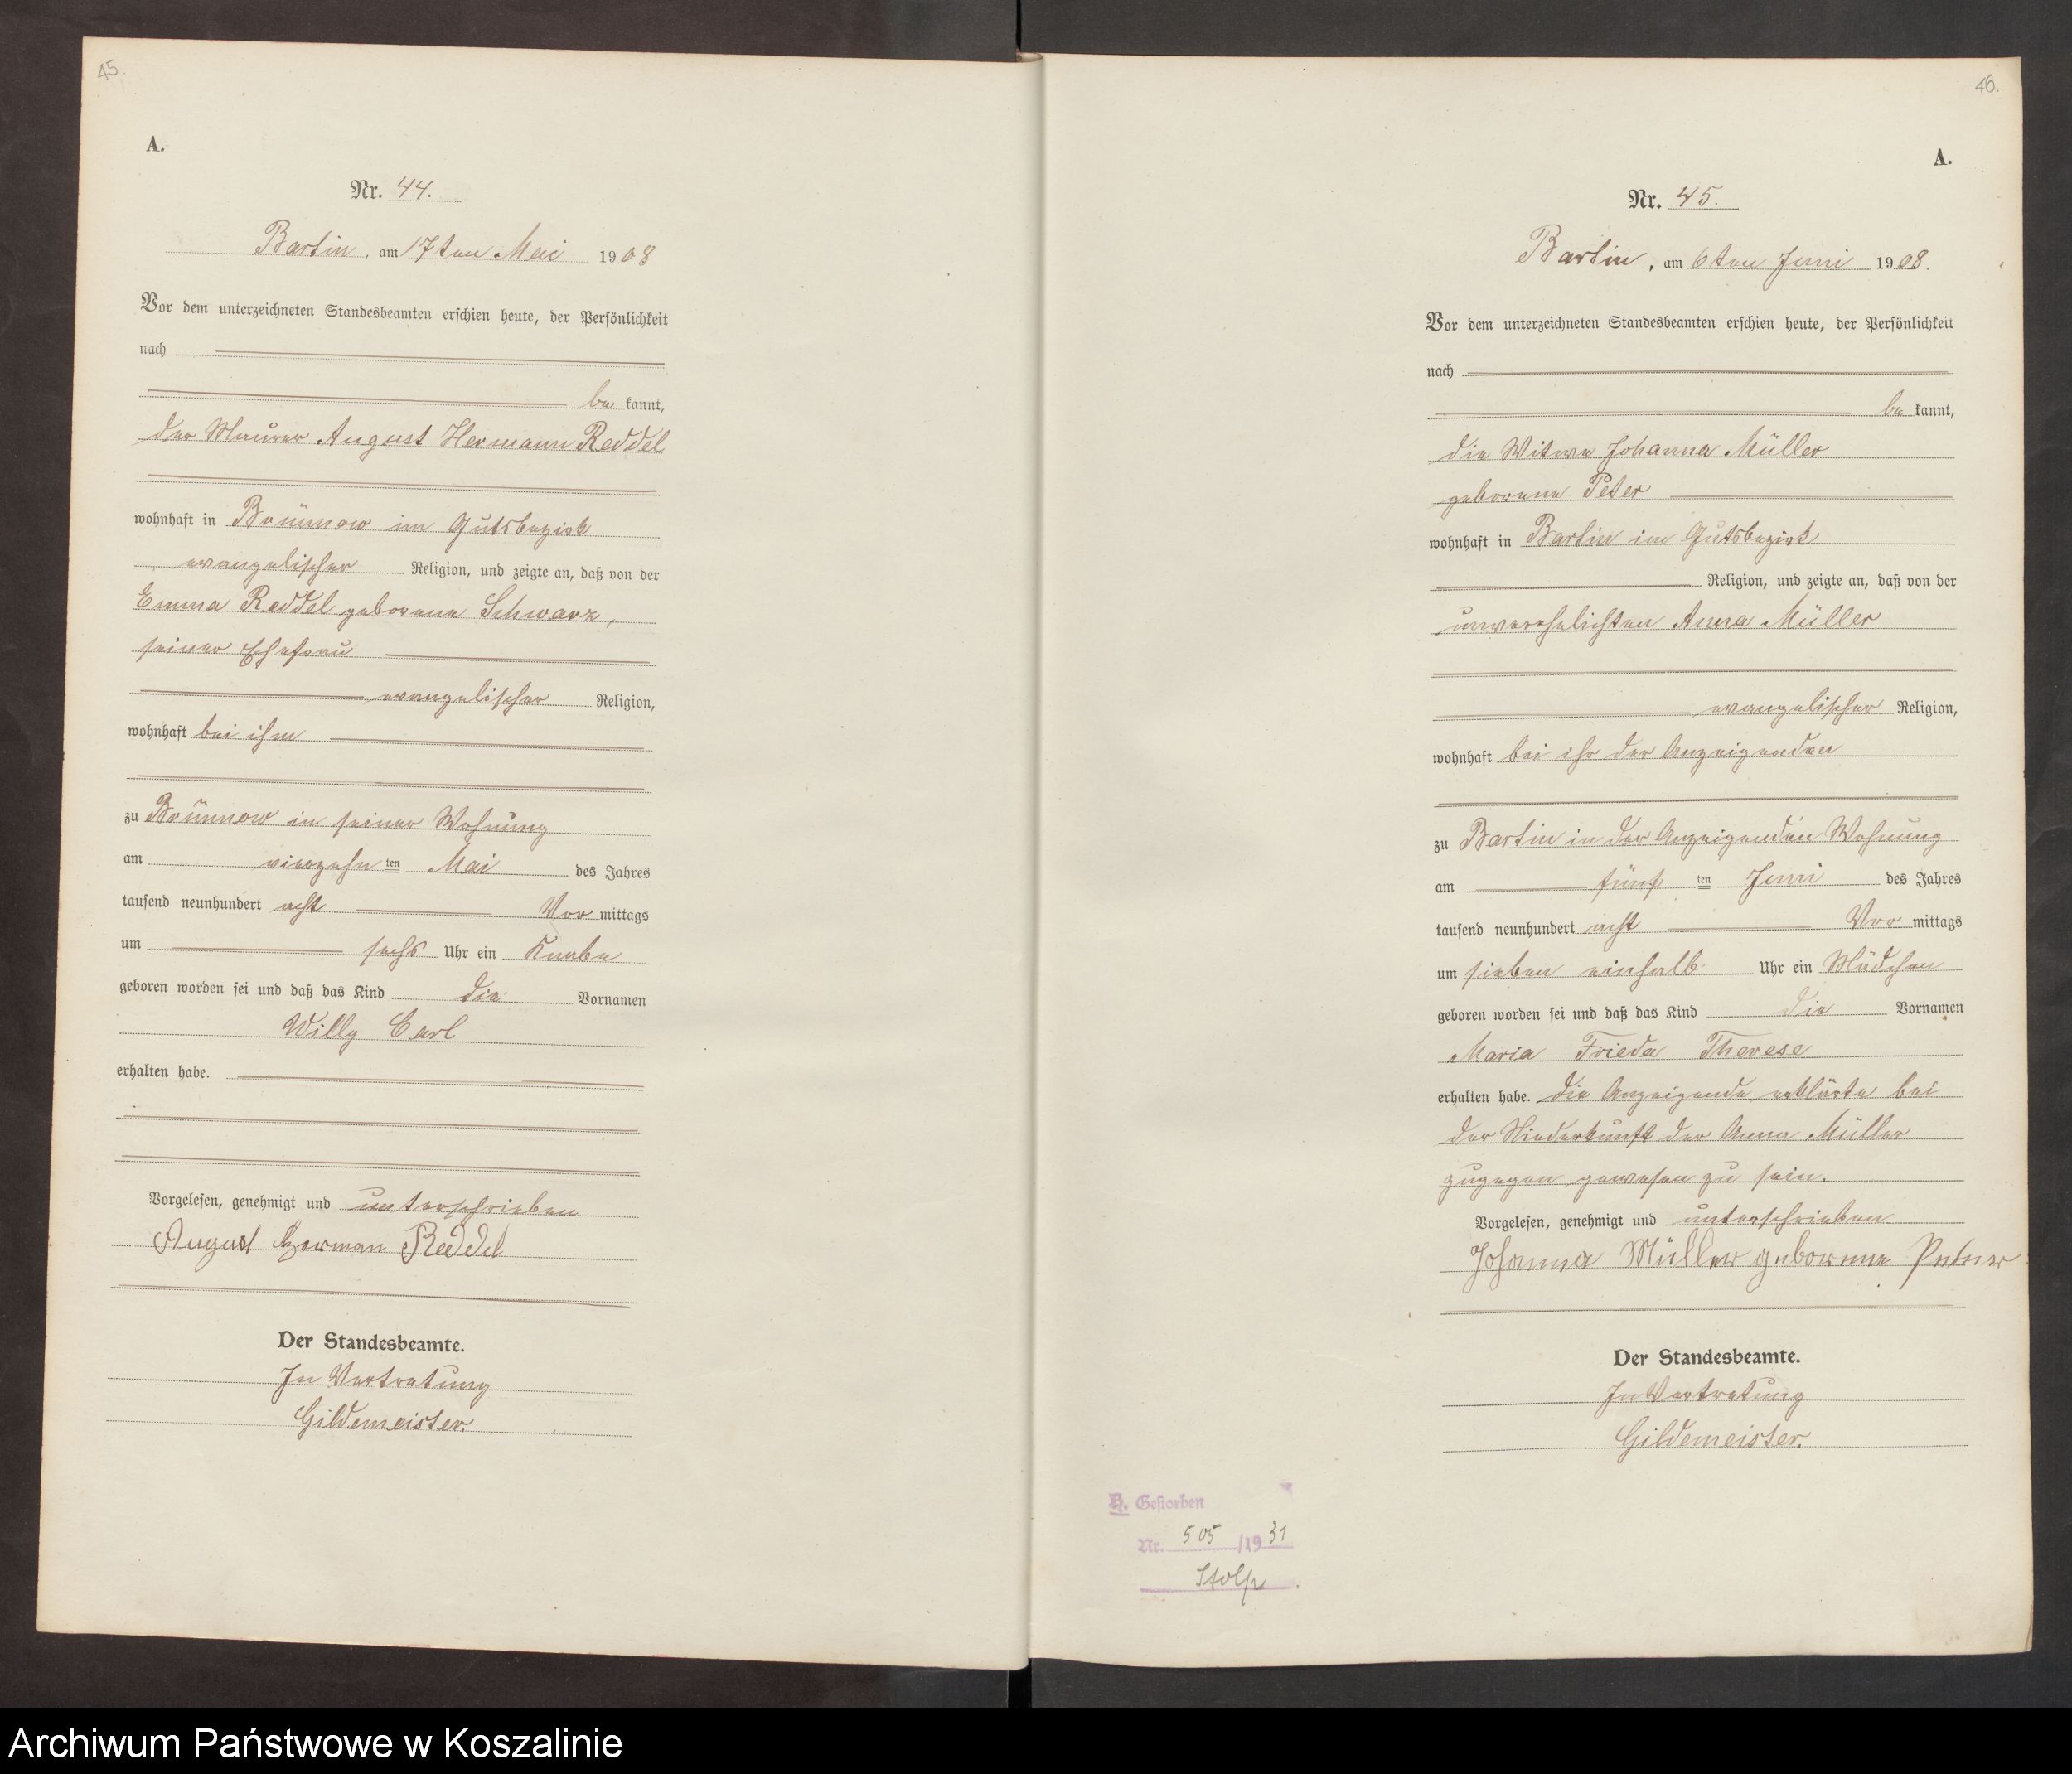 45.
A.
Nr. 44.
Bartin, am 17ten Mai 1908
Vor dem unterzeichneten Standesbeamten erschien heute, der Persönlichkeit
nach
be kannt,
der Maurer August Hermann Reddel
wohnhaft in Brünnow im Gutsbezirk
evangelischer Religion, und zeigte an, daß von der
Emma Reddel geborene Schwarz,
seiner Ehefrau
evangelischer Religion,
wohnhaft bei ihm
zu Brünnow in seiner Wohnung
am vierzehn ten Mai des Jahres
tausend neunhundert acht Vor mittags
um sechs Uhr ein Knabe
geboren worden sei und daß das Kind die Vornamen
Willy Carl
erhalten habe.
Vorgelesen, genehmigt und unterschrieben
August Herman Reddel
Der Standesbeamte.
In Vertretung
Gildemeister.
46.
A.
Nr. 45.
Bartin, am 6ten Juni 1908.
Vor dem unterzeichneten Standesbeamten erschien heute, der Persönlichkeit
nach
be kannt,
die Witwe Johanna Müller
geborene Peter
wohnhaft in Bartin im Gutsbezirk
Religion, und zeigte an, daß von der
unverehelichten Anna Müller
evangelischer Religion,
wohnhaft bei ihr der Anzeigenden
zu Bartin in der Anzeigenden Wohnung
am fünf ten Juni des Jahres
tausend neunhundert acht Vor mittags
um sieben einhalb Uhr ein Mädchen
geboren worden sei und daß das Kind die Vornamen
Maria Frieda Therese
erhalten habe. Die Anzeigende erklärte bei
der Niederkunft der Anna Müller
zugegen gewesen zu sein.
Vorgelesen, genehmigt und unterschrieben
Johanna Müller geborene
Der Standesbeamte.
In Vertretung
Gildemeister.
Gestorben
Nr. 505/1931
Stolp
Archiwum Państwowe w Koszalinie